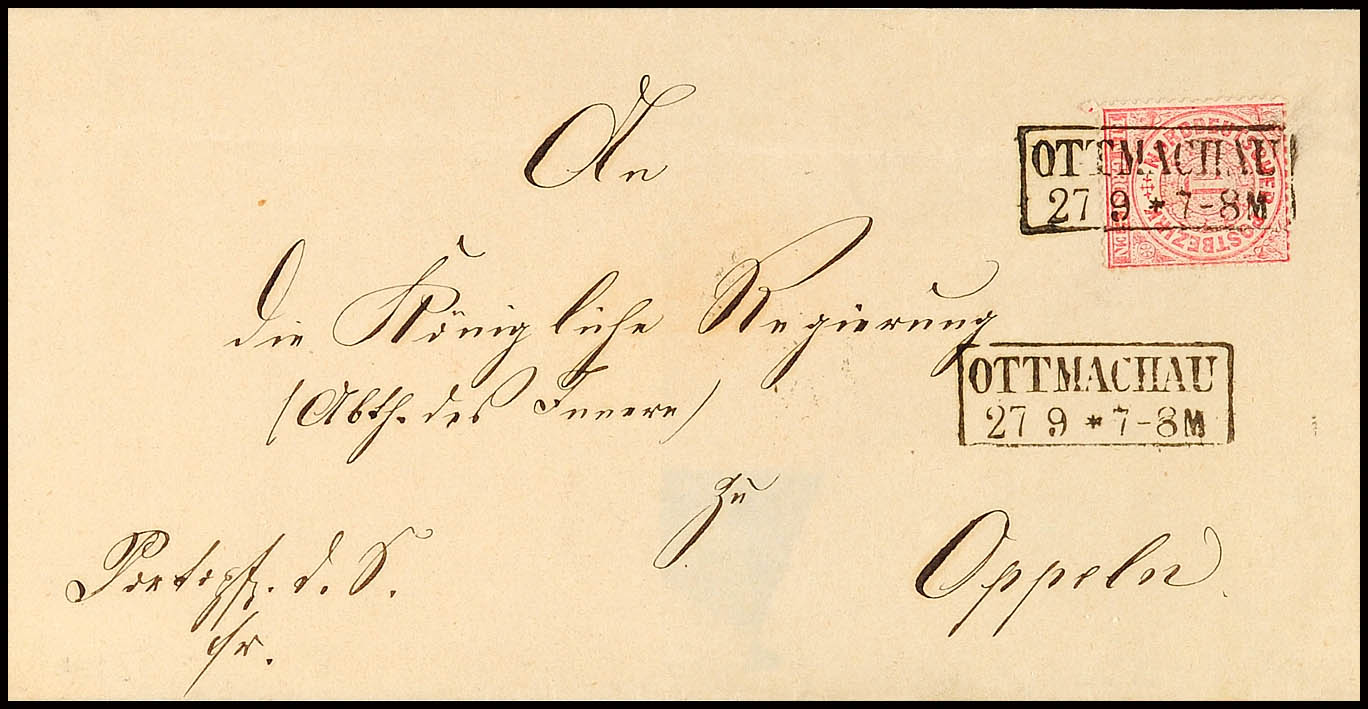 An
die Königliche Regierung
(Abth. des Innern)
zu
Oppeln
Portopfl. d. S.
fr.
NORDDEUTSCHER POSTBEZIRK
OTTMACHAU
27 9 * 7-8M
OTTMACHAU
27 9 * 7-8M